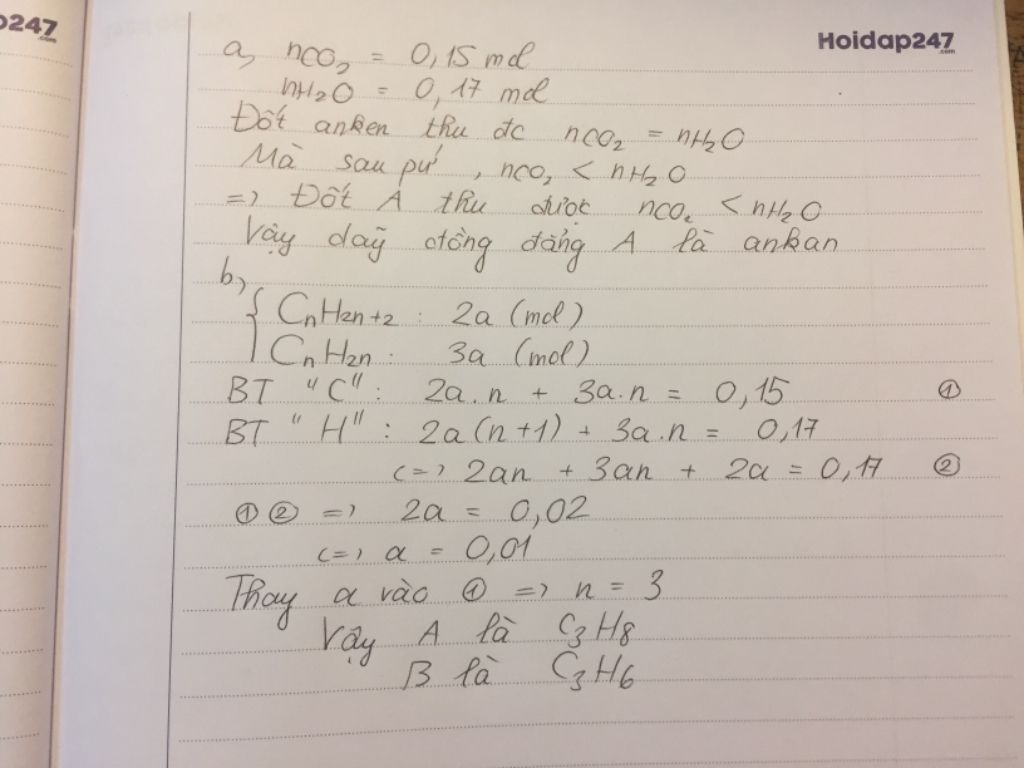 247
.com
Hoidap247
.com
a, nCO₂ = 0,15 mol
nH₂O = 0,17 mol
Đốt anken thu đc nCO₂ = nH₂O
Mà sau pứ, nCO₂ < nH₂O
=> Đốt A thu được nCO₂ < nH₂O
Vậy daỹ đồng đẳng A là ankan
b,
{ CnH2n+2 : 2a (mol)
CnH2n : 3a (mol)
BT "C" : 2a.n + 3a.n = 0,15 ①
BT "H" : 2a(n+1) + 3a.n = 0,17
<=> 2an + 3an + 2a = 0,17 ②
① ② => 2a = 0,02
<=> a = 0,01
Thay a vào ① => n = 3
Vậy A là C₃H₈
B là C₃H₆